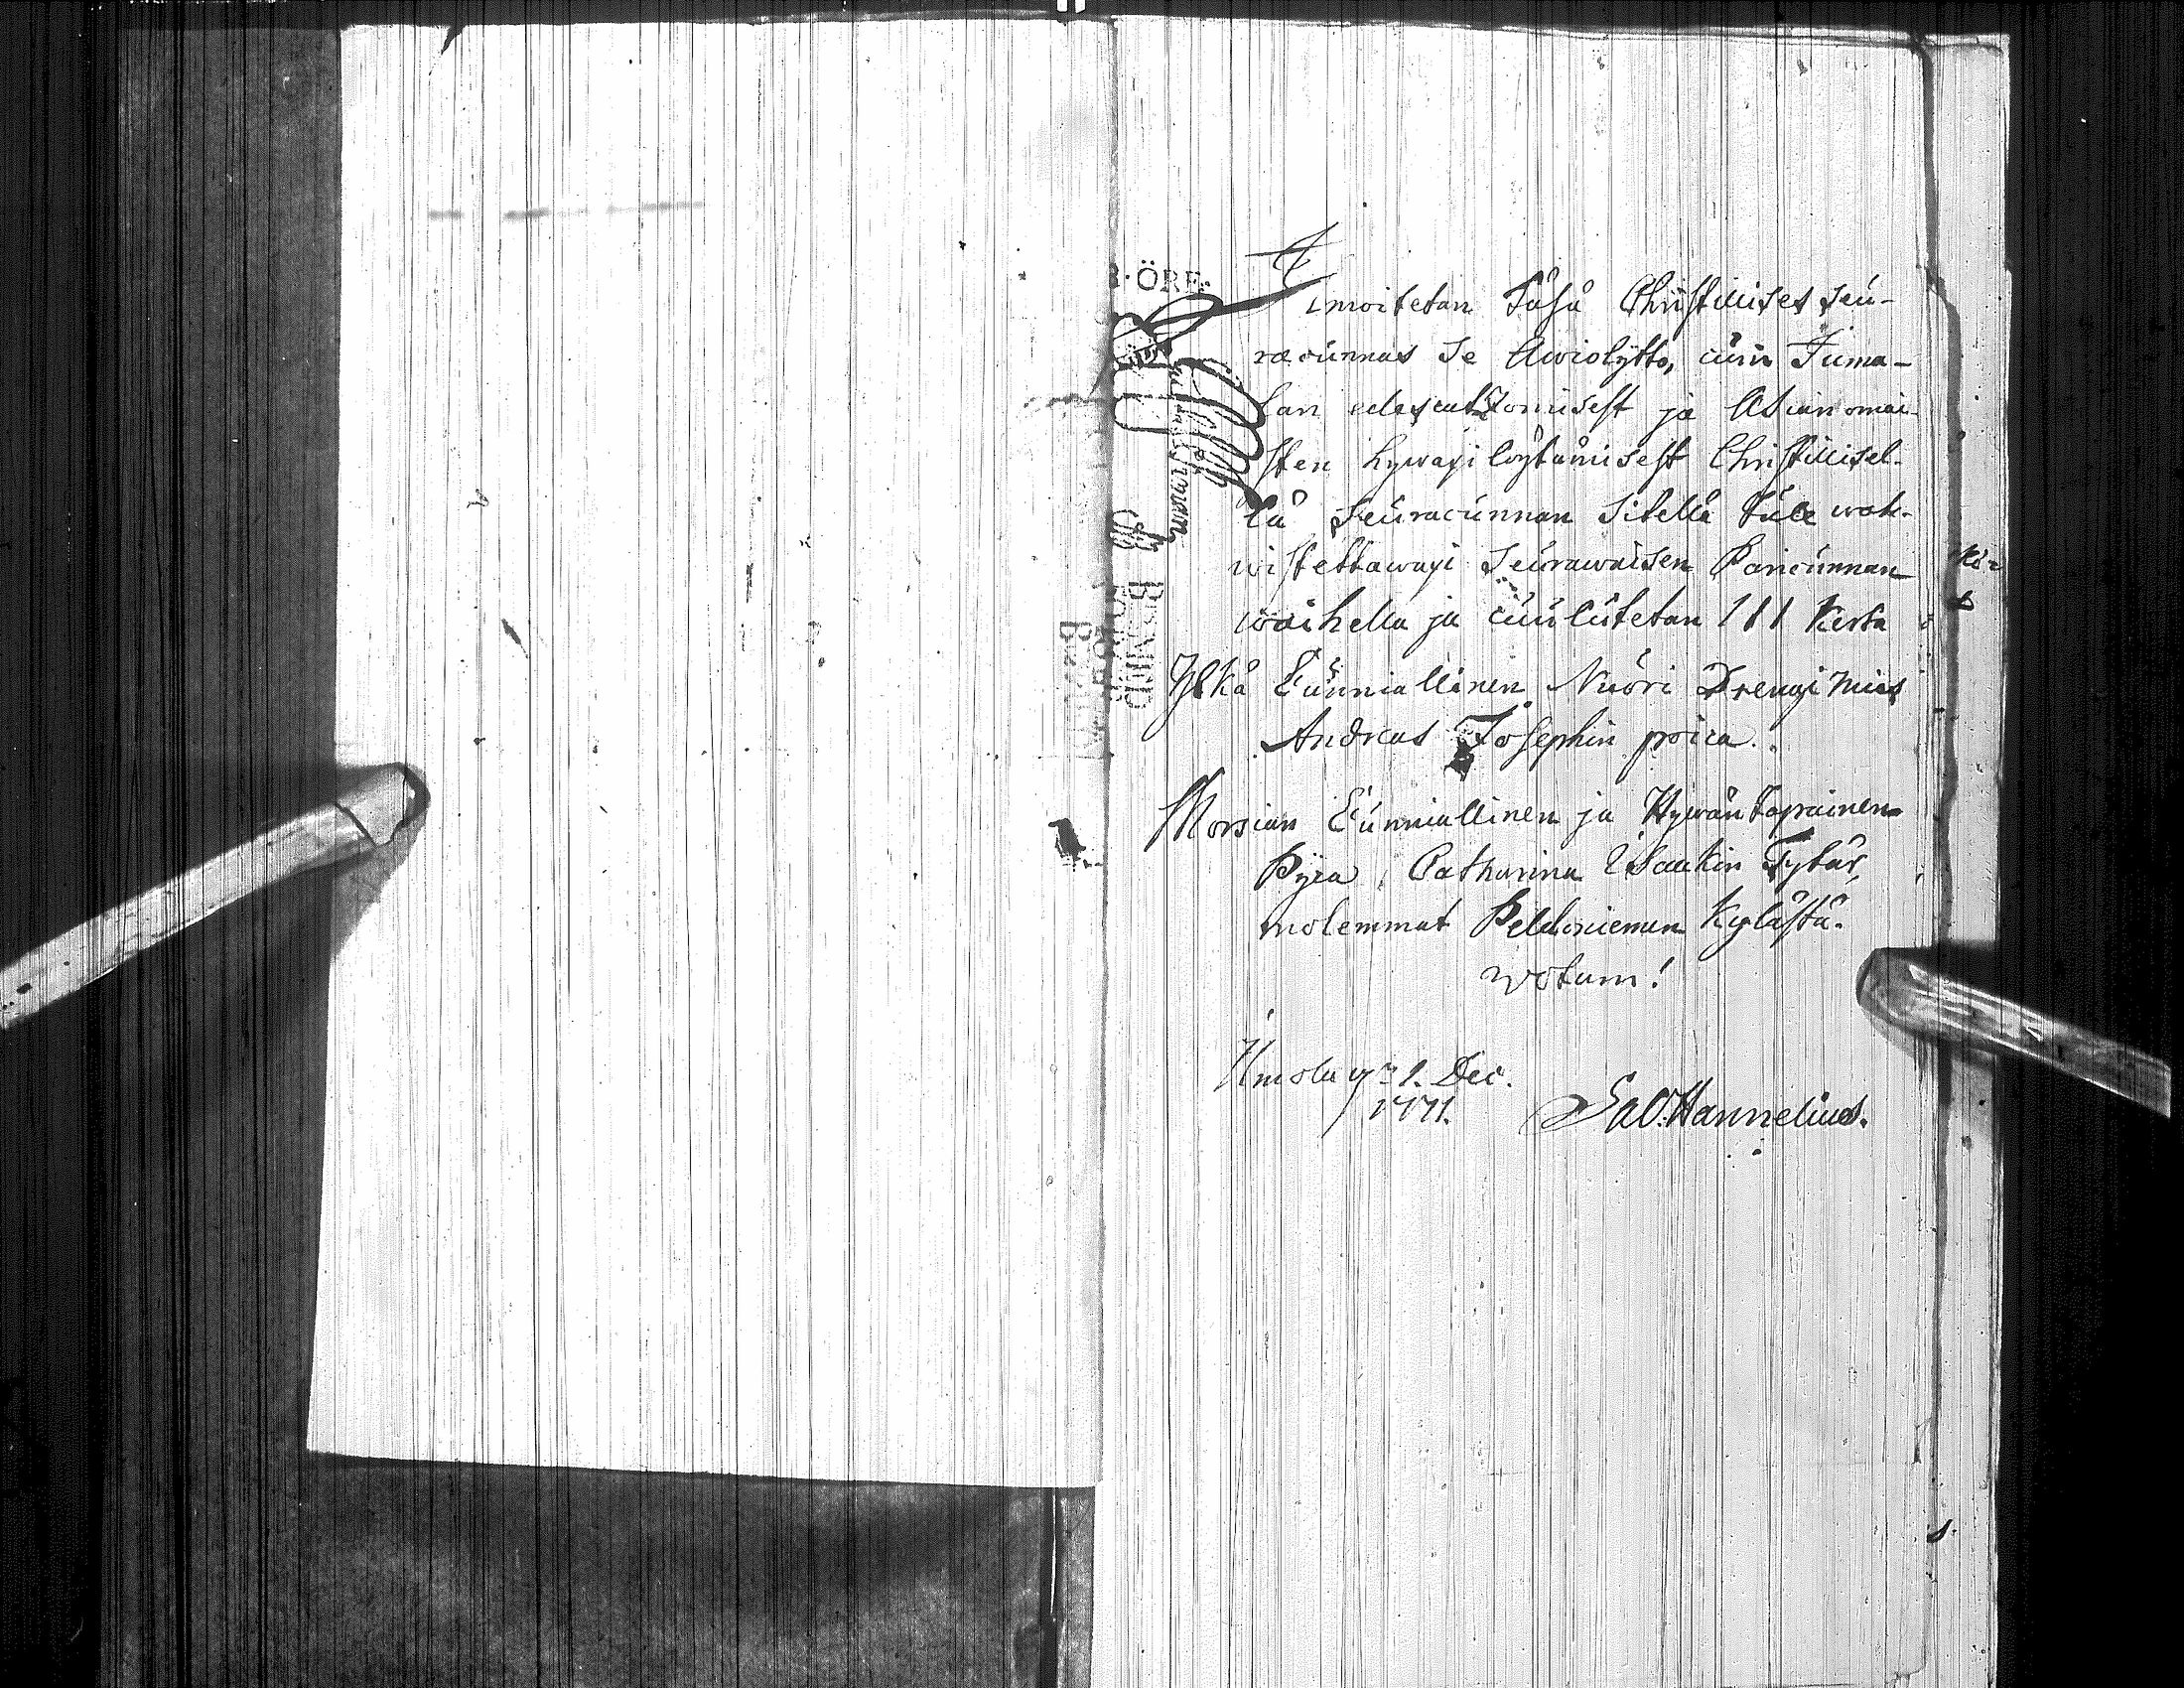 Ilmoitetan Täsä Christillises seu-
racunnas se Awiolijtto, cuin Juma-
lan edescatzomisest ja Asianomai-
sten hywaxi löytämisest Christillisel-
lä Seuracunnan sitellä tule wah-
wistettawaxi Seurawaisen Paricunnan
waihella ja cuulutetan 1 1 1 Kerta
Ylkä Cunniallinen Nuori Drengi mies
Andreas Josephin poica.
Morsian Cunniallinen ja Hywäntapainen
Pijca Catharina Isaakin Tytär,
molemmat Peldoniemen Kylästä.
Votum!
1. Dec.
1771. Sal. Hannelius.
ÖRE.